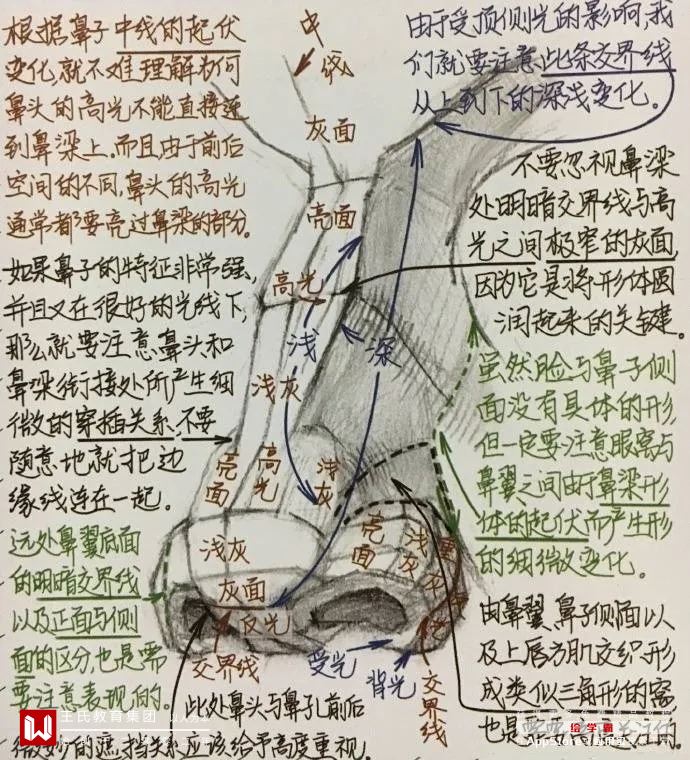 根据鼻子中线的起伏
变化,就不难理解为何
鼻头的高光不能直接连
到鼻梁上.而且,由于前后
空间的不同,鼻头的高光
通常都要亮过鼻梁的部分。
如果鼻子的特征非常强,
并且又在很好的光线下,
那么就要注意鼻头和
鼻梁衔接处所产生细
微的穿插关系,不要
随意地就把边
缘线连在一起。
远处鼻翼底面
的明暗交界线
以及正面与侧
面的区分,也是需
要注意表现的。
中
线
灰面
亮面
高光
浅
深
浅灰
亮面
高光
浅灰
浅灰
灰面
反光
亮面
浅灰
交界线
受光
背光
交界线
此处鼻头与鼻孔前后
微妙的遮挡关系应该给予高度重视。
由于受顶侧光的影响,我
们就要注意,此条交界线
从上到下的深浅变化。
不要忽视鼻梁
处明暗交界线与高
光之间极窄的灰面,
因为它是将形体圆
润起来的关键。
虽然脸与鼻子侧
面没有具体的形,
但一定要注意眼窝与
鼻翼之间由于鼻梁形
体的起伏而产生形
的细微变化。
由鼻翼,鼻子侧面以
及上唇方肌交织形
成类似三角形的窝,
也是需要高度
王氏教育集团
绘学霸